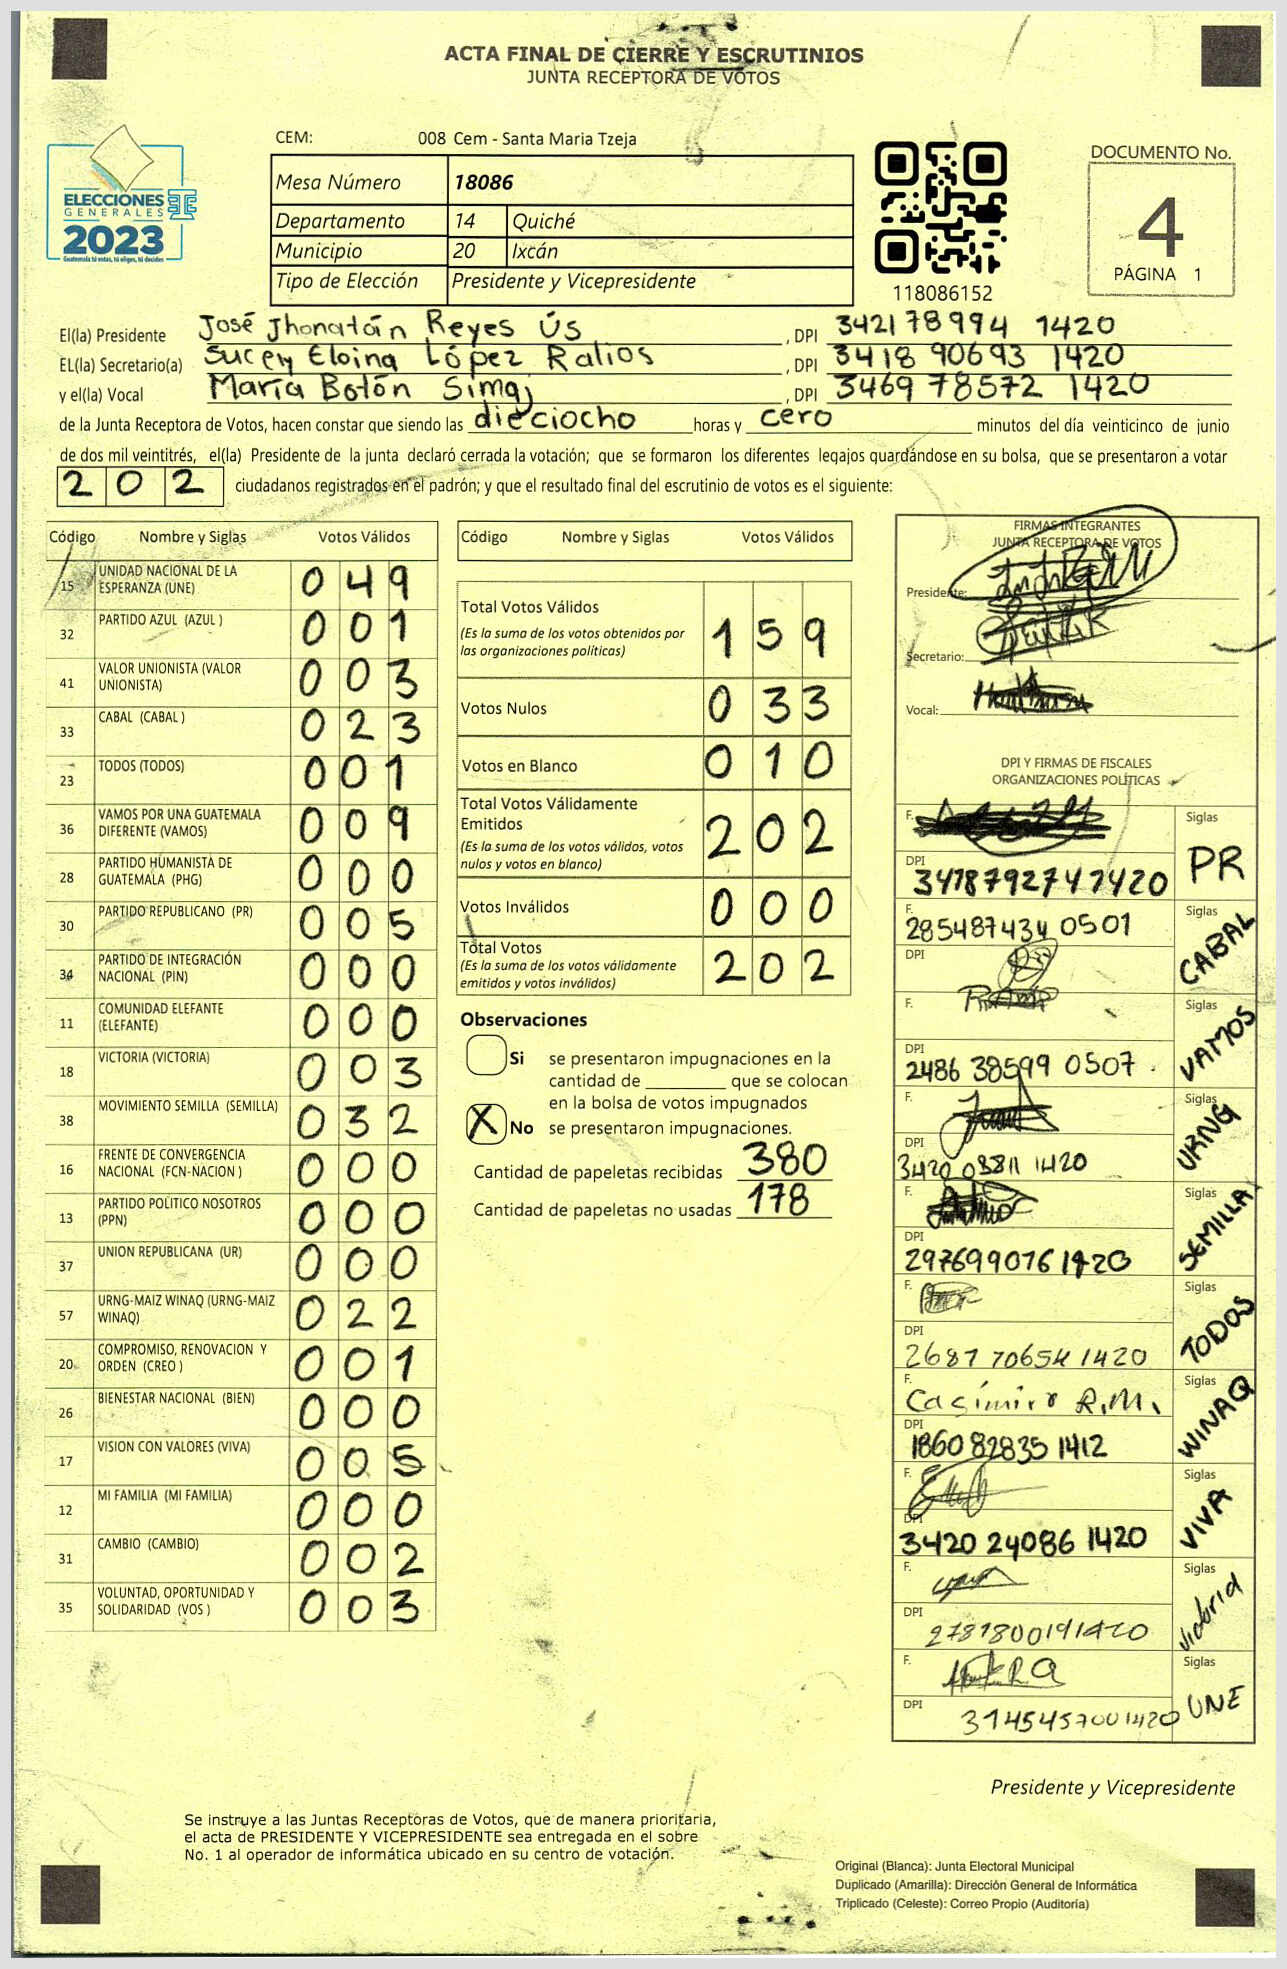 ACTA FINAL DE CIERRE Y ESCRUTINIOS
JUNTA RECEPTORA DE VOTOS
ELECCIONES
GENERALES
2023
Guatemala tú votas, tú eliges, tú decides
CEM: 008 Cem - Santa Maria Tzeja
Mesa Número 18086
Departamento 14 Quiché
Municipio 20 Ixcán
Tipo de Elección Presidente y Vicepresidente
118086152
DOCUMENTO No.
4
PÁGINA 1
El(la) Presidente José Jhonatán Reyes Ús , DPI 342178994 1420
EL(la) Secretario(a) Sucely Eloina López Ralios , DPI 3418 90693 1420
y el(la) Vocal María Botón Simaj , DPI 3469 78572 1420
de la Junta Receptora de Votos, hacen constar que siendo las dieciocho horas y cero minutos del día veinticinco de junio
de dos mil veintitrés, el(la) Presidente de la junta declaró cerrada la votación; que se formaron los diferentes legajos quardándose en su bolsa, que se presentaron a votar
202 ciudadanos registrados en el padrón; y que el resultado final del escrutinio de votos es el siguiente:
Código Nombre y Siglas Votos Válidos
15 UNIDAD NACIONAL DE LA
ESPERANZA (UNE) 0 4 9
32 PARTIDO AZUL (AZUL ) 0 0 1
41 VALOR UNIONISTA (VALOR
UNIONISTA) 0 0 3
33 CABAL (CABAL ) 0 2 3
23 TODOS (TODOS) 0 0 1
36 VAMOS POR UNA GUATEMALA
DIFERENTE (VAMOS) 0 0 9
28 PARTIDO HUMANISTA DE
GUATEMALA (PHG) 0 0 0
30 PARTIDO REPUBLICANO (PR) 0 0 5
34 PARTIDO DE INTEGRACIÓN
NACIONAL (PIN) 0 0 0
11 COMUNIDAD ELEFANTE
(ELEFANTE) 0 0 0
18 VICTORIA (VICTORIA) 0 0 3
38 MOVIMIENTO SEMILLA (SEMILLA) 0 3 2
16 FRENTE DE CONVERGENCIA
NACIONAL (FCN-NACION ) 0 0 0
13 PARTIDO POLITICO NOSOTROS
(PPN) 0 0 0
37 UNION REPUBLICANA (UR) 0 0 0
57 URNG-MAIZ WINAQ (URNG-MAIZ
WINAQ) 0 2 2
20 COMPROMISO, RENOVACION Y
ORDEN (CREO ) 0 0 1
26 BIENESTAR NACIONAL (BIEN) 0 0 0
17 VISION CON VALORES (VIVA) 0 0 5
12 MI FAMILIA (MI FAMILIA) 0 0 0
31 CAMBIO (CAMBIO) 0 0 2
35 VOLUNTAD, OPORTUNIDAD Y
SOLIDARIDAD (VOS ) 0 0 3
Código Nombre y Siglas Votos Válidos
Total Votos Válidos
(Es la suma de los votos obtenidos por
las organizaciones políticas) 1 5 9
Votos Nulos 0 3 3
Votos en Blanco 0 1 0
Total Votos Válidamente
Emitidos
(Es la suma de los votos válidos, votos
nulos y votos en blanco) 2 0 2
Votos Inválidos 0 0 0
Total Votos
(Es la suma de los votos válidamente
emitidos y votos inválidos) 2 0 2
Observaciones
Si se presentaron impugnaciones en la
cantidad de ________ que se colocan
en la bolsa de votos impugnados
X No se presentaron impugnaciones.
Cantidad de papeletas recibidas 380
Cantidad de papeletas no usadas 178
FIRMAS INTEGRANTES
JUNTA RECEPTORA DE VOTOS
Presidente:
Secretario:
Vocal:
DPI Y FIRMAS DE FISCALES
ORGANIZACIONES POLÍTICAS
F. Siglas
DPI 3418792741420 PR
F. 285487434 0501 Siglas
DPI CABAL
F. Siglas
DPI 2486 38599 0507 VAMOS
F. Siglas
DPI 3420 03811 1420 URNG
F. Siglas
DPI 297699076 1420 SEMILLA
F. Siglas
DPI 2687 70654 1420 TODOS
F. Casimiro R.M. Siglas
DPI 1860 82835 1412 WINAQ
F. Siglas
DPI 3420 24086 1420 VIVA
F. Siglas
DPI 2781800191420 Victoria
F. Siglas
DPI 3145457001420 UNE
Presidente y Vicepresidente
Se instruye a las Juntas Receptoras de Votos, que de manera prioritaria,
el acta de PRESIDENTE Y VICEPRESIDENTE sea entregada en el sobre
No. 1 al operador de informática ubicado en su centro de votación.
Original (Blanca): Junta Electoral Municipal
Duplicado (Amarilla): Dirección General de Informática
Triplicado (Celeste): Correo Propio (Auditoría)